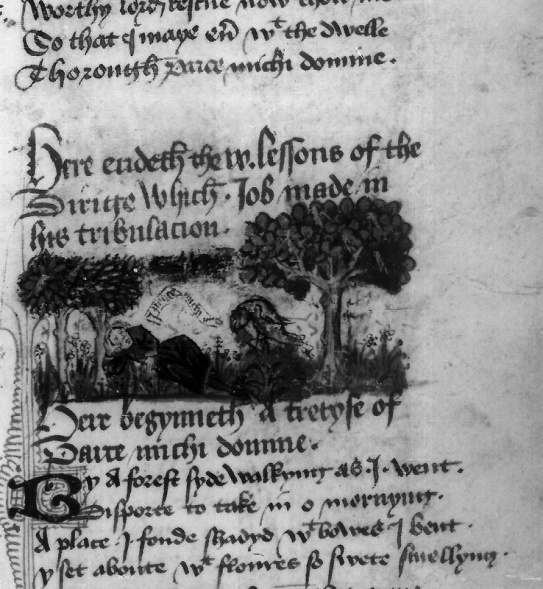 Worthy lord rescue now then me
So that I maye eū wt the dwelle
Thorough Parce michi domine.
Here endeth the ix. lessons of the
Dirige Which. Job made in
his tribulacion.
Parce michi
Here begynneth a tretyse of
Parce michi domine.
By A forest syde Walkyng as. I. went.
Disporte to take in o mornyng.
A place I fonde shadyd wt bowes I bent
y set aboute wt floures so swete smellyng.